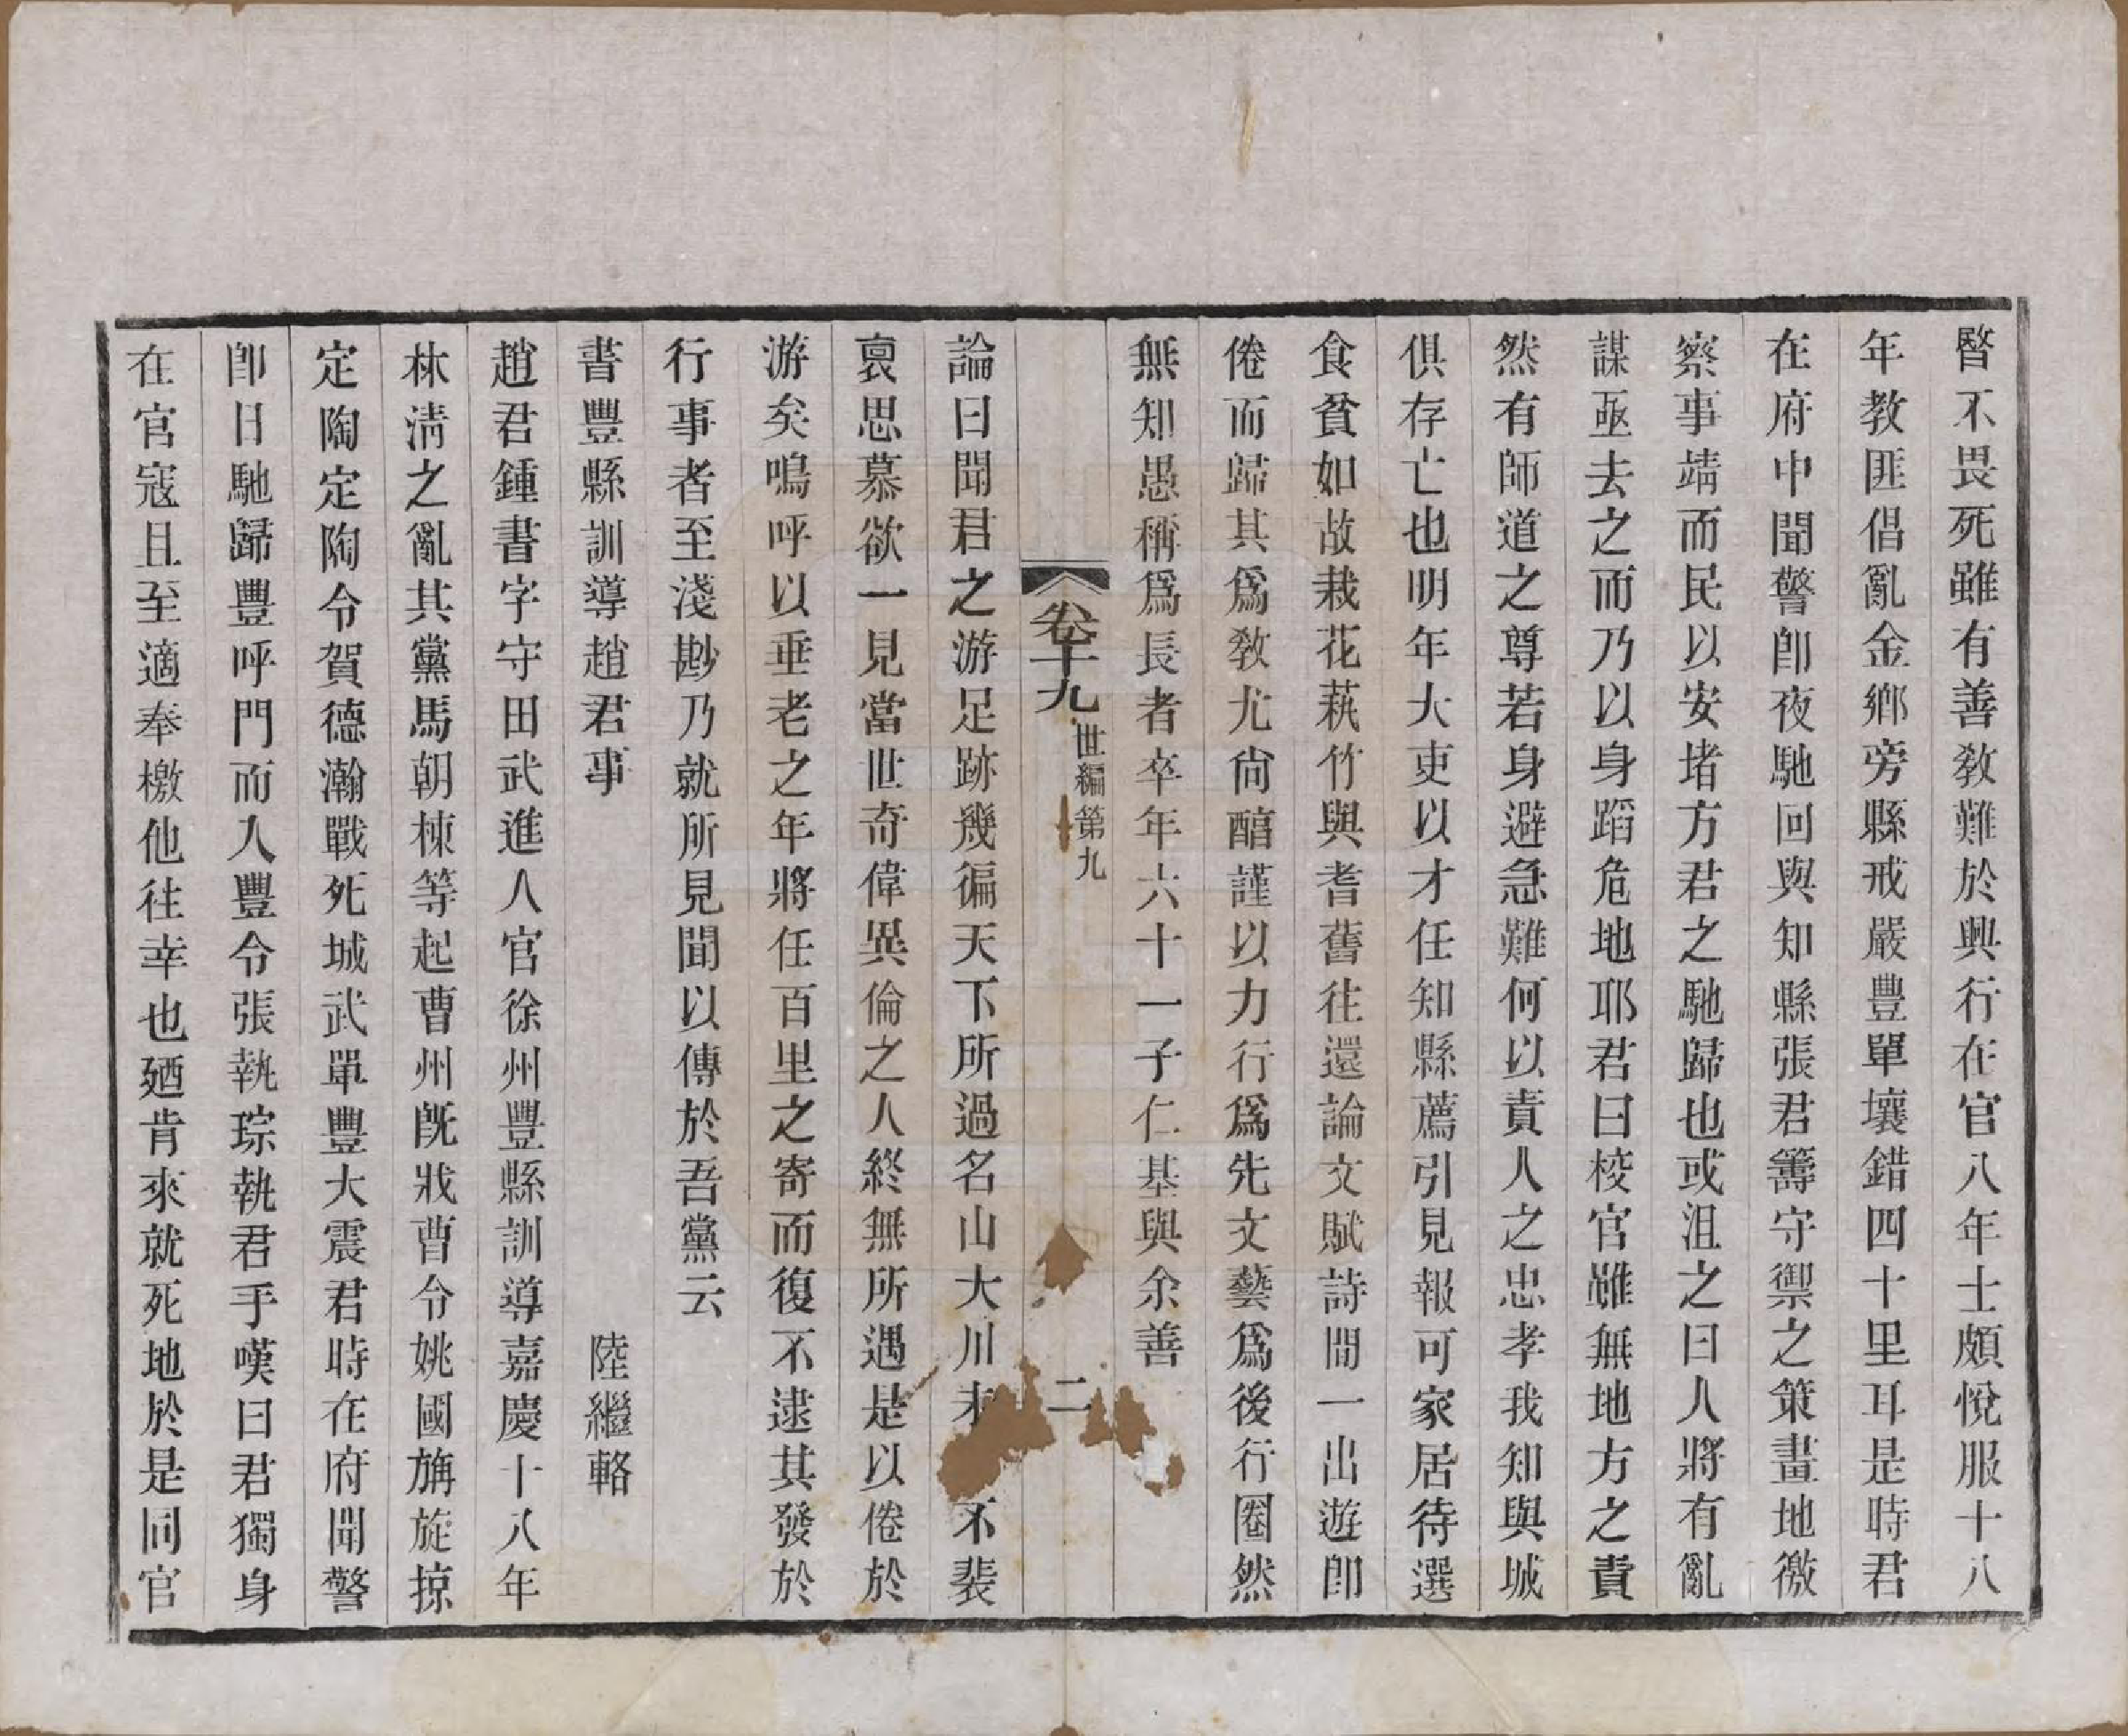 暋不畏死雖有善敎難於興行在官八年士頗悅服十八
年教匪倡亂金鄉旁縣戒嚴豐單壤錯四十里耳是時君
在府中聞警卽夜馳回與知縣張君籌守禦之策畫地徼
察事靖而民以安堵方君之馳歸也或沮之曰人將有亂
謀亟去之而乃以身蹈危地耶君曰校官雖無地方之責
然有師道之尊若身避急難何以責人之忠孝我知與城
俱存亡也明年大吏以才任知縣薦引見報可家居待選
食貧如故栽花蓺竹與耆舊往還論文賦詩間一出遊卽
倦而歸其爲敎尤尙醕謹以力行爲先文藝爲後行圈然
無知愚稱爲長者卒年六十一子仁基與余善
卷十九
世編第九
二
論曰聞君之游足跡幾徧天下所過名山大川未不裴
裒思慕欲一見當世奇偉異倫之人終無所遇是以倦於
游矣嗚呼以垂老之年將任百里之寄而復不逮其發於
行事者至淺尠乃就所見聞以傳於吾黨云
書豐縣訓導趙君事
陸繼輅
趙君鍾書字守田武進人官徐州豐縣訓導嘉慶十八年
林淸之亂其黨馬朝棟等起曹州旣戕曹令姚國旃旋掠
定陶定陶令賀德瀚戰死城武單豐大震君時在府聞警
卽日馳歸豐呼門而入豐令張執琮執君手嘆曰君獨身
在官寇且至適奉檄他往幸也廼肯來就死地於是同官